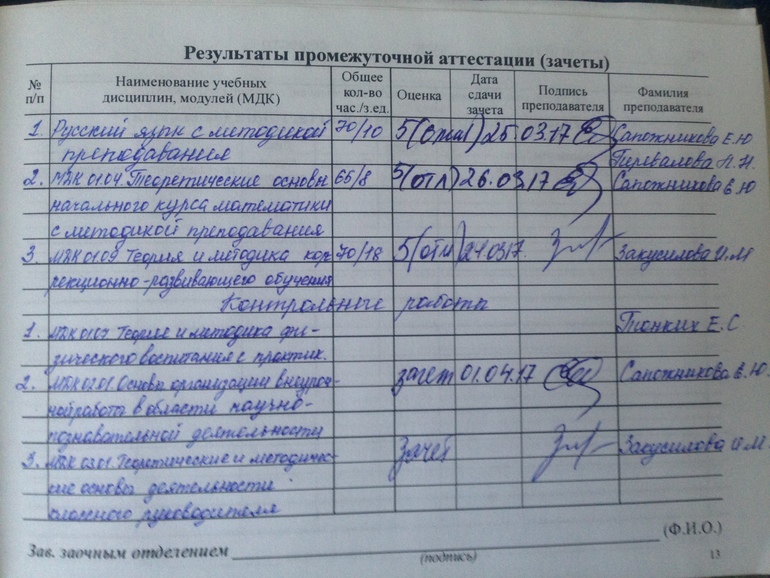 Результаты промежуточной аттестации (зачеты)
№ п/п Наименование учебных дисциплин, модулей (МДК) Общее кол-во час./з.ед. Оценка Дата сдачи зачета Подпись преподавателя Фамилия преподавателя
1. Русский язык с методикой 70/10 5(отл) 25.03.17 Сапожникова Е.Ю
преподавания Перевалова
2. МДК 01.04. Теоретические основы 65/8 5(отл) 26.03.17 Сапожникова Е.Ю
начального курса математики
с методикой преподавания
3. МДК 01.09 Теория и методика кор- 70/18 5(отл) 21.03.17. Закусилова И.М
рекционно-развивающего обучения
Контрольные работы
1. МДК 01.07 Теория и методика фи- Тонких Е.С
зического воспитания с практик.
2. МДК 02.01. Основы организации внеуроч- зачет 01.04.17 Сапожникова Е.Ю.
ной работы в области научно-
познавательной деятельности
3. МДК 03.01. Теоретические и методичес- Зачет Закусилова И.М.
кие основы деятельности
классного руководителя
Зав. заочным отделением (Ф.И.О.)
(подпись)
13